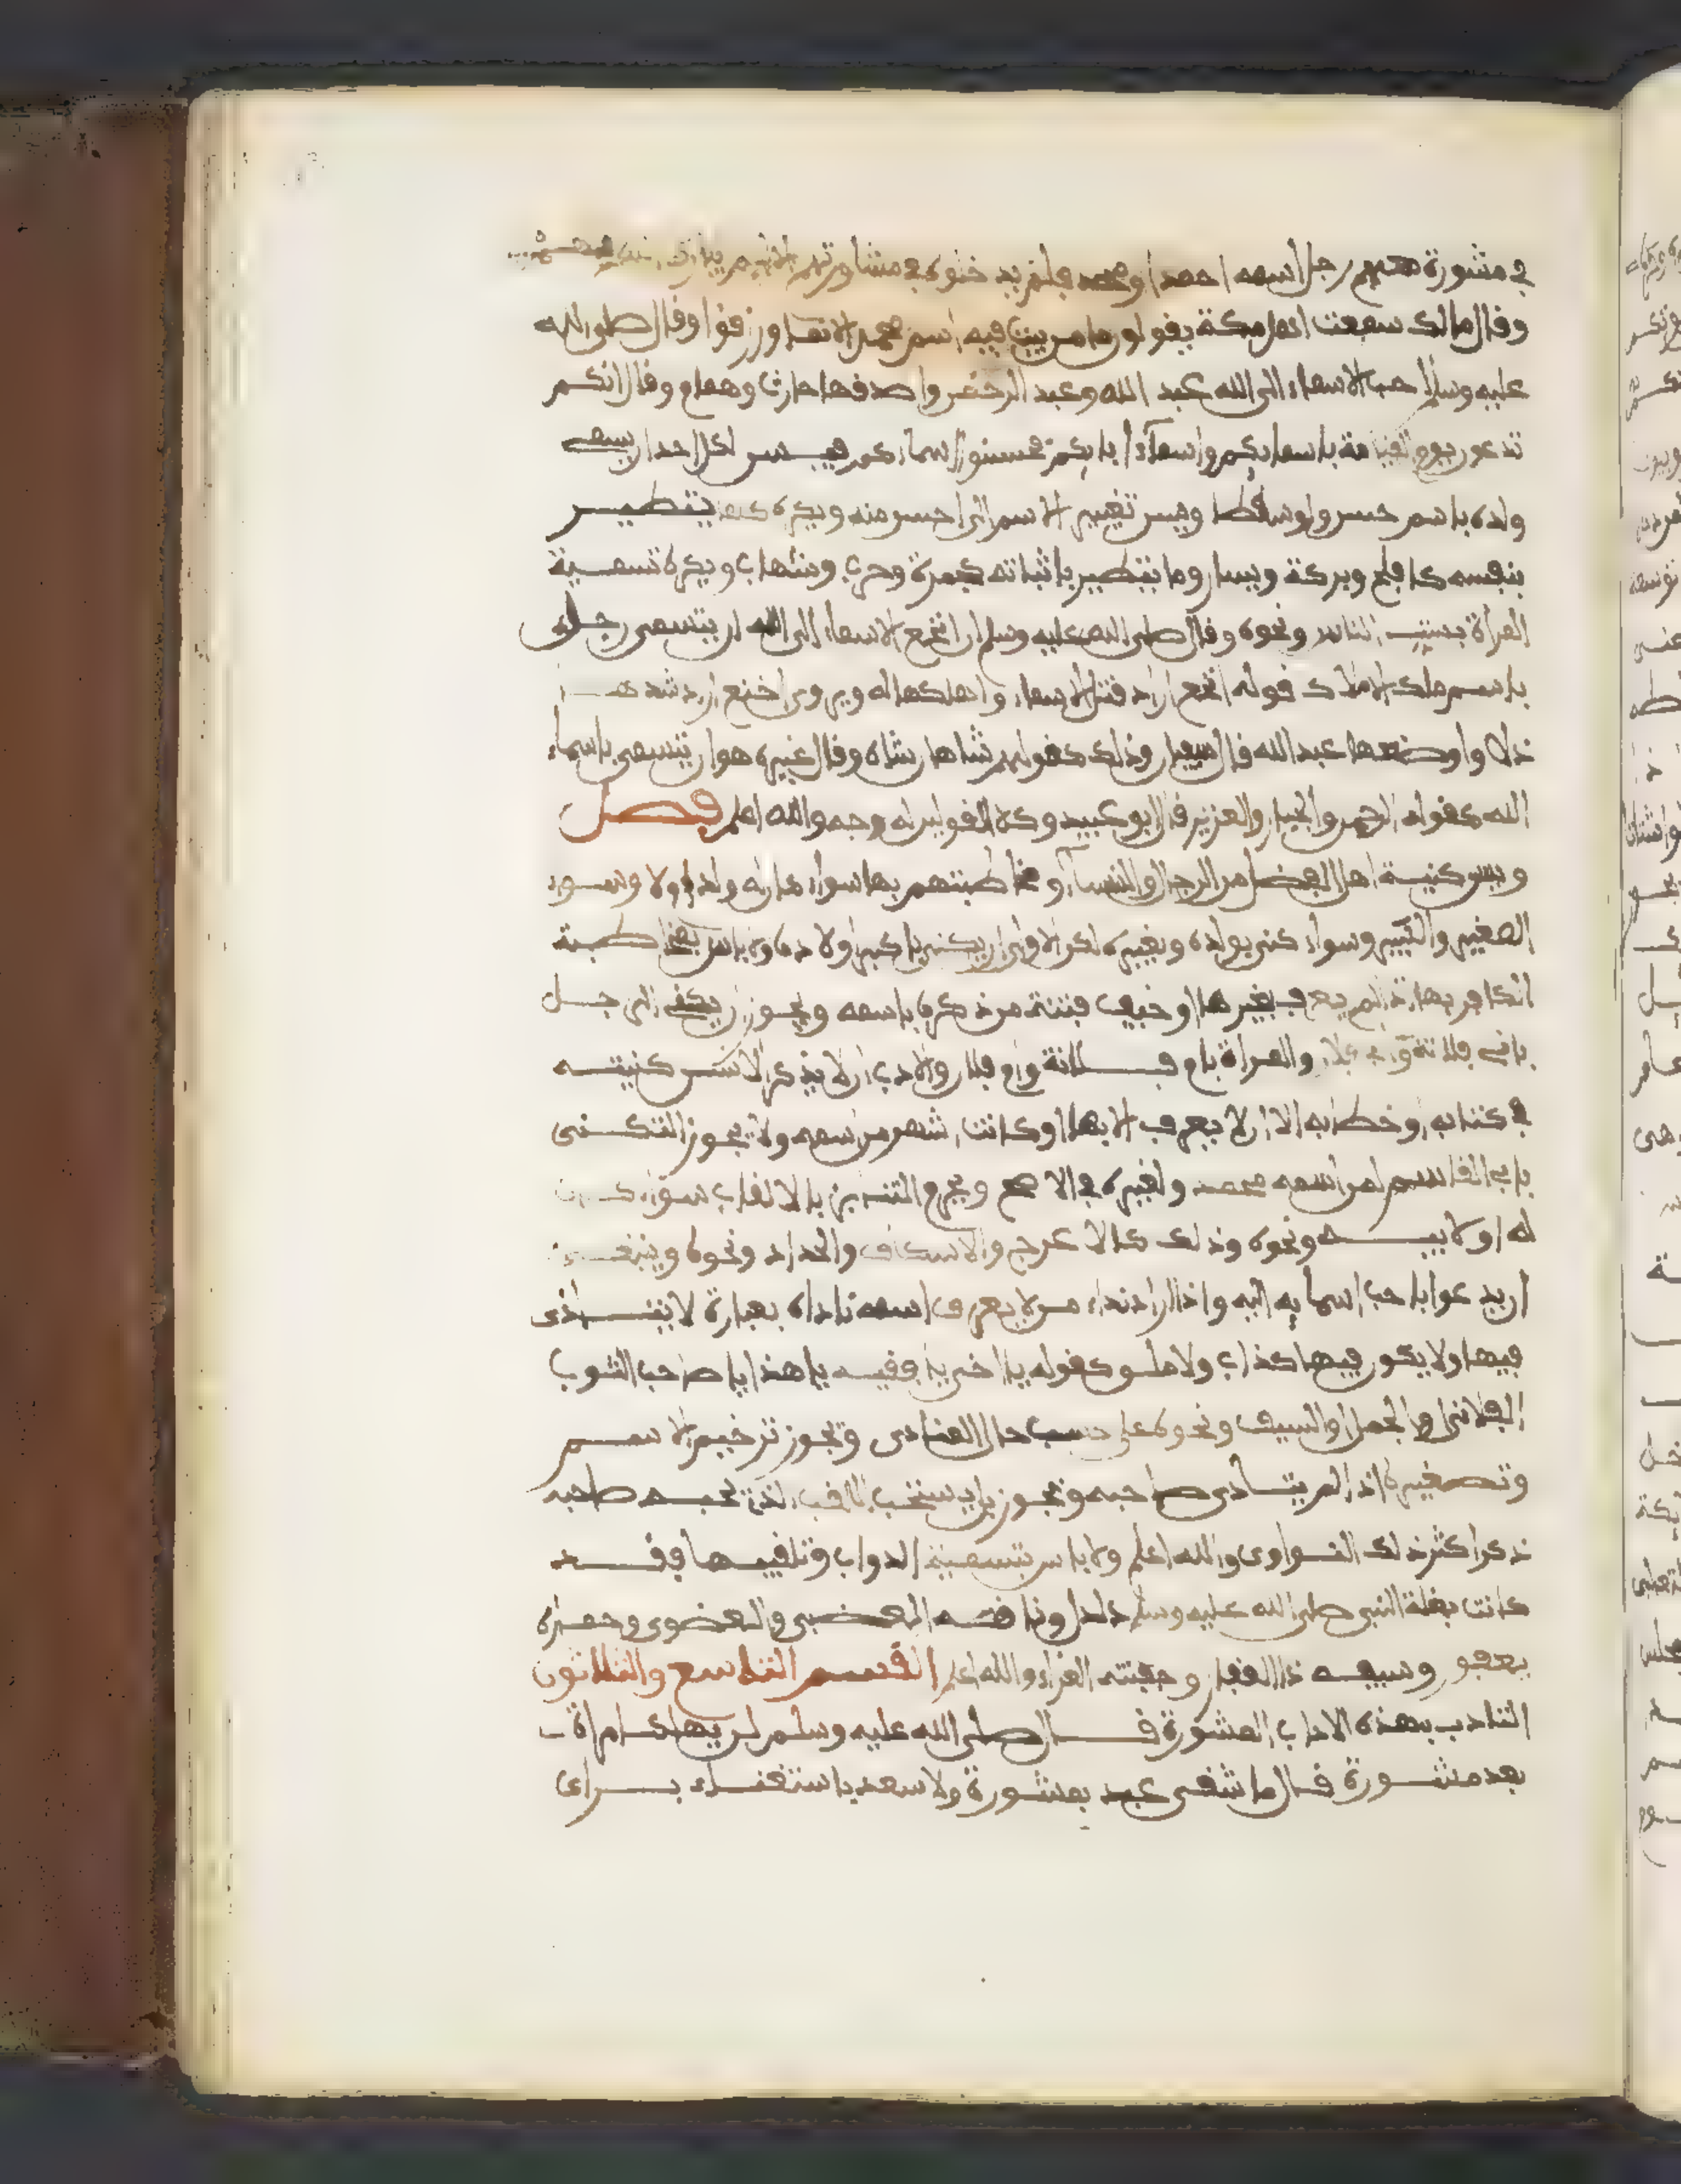 في مشورة معهم رجل اسمه احمد او محمد فلم يدخلوه في مشاورتهم الا لم يبارك لهم فيها
وقال مالك سمعت اهل مكة يقولون ما من بيت فيه اسم محمد الا نما ورزقوا وقال صلى الله
عليه وسلم احب الاسماء الى الله عبد الله وعبد الرحمن واصدقها حارث وهمام وقال انكم
تدعون يوم القيامة باسمايكم واسماء ابايكم فحسنوا اسماءكم فيسن لكل احد ان يسمى
ولده باسم حسن ولو سقطا ويسن تغيير الاسم الى احسن منه ويكره بما يتطير
بنفيه كافلح وبركة ويسار وما يتطير باثباته كمرة وحرب وشهاب ويكره تسمية
المراة بست الناس ونحوه وقال صلى الله عليه وسلم ان انخع الاسماء الى الله ان يتسمى رجل
باسم ملك الاملاك قوله انخع اراد اقتل الاسماء واهلكها له ويروى اخنع اي اشدها
ذلا واوضعها عبد الله قال سفيان وذلك كقولهم شاهان شاه وقال غيره هو ان يتسمى باسماء
الله كقوله الرحمن والجبار والعزيز قال ابو عبيد وكلا القولين له وجه والله اعلم فصل
ويسن كنية اهل الفضل من الرجال والنساء ومخاطبتهم بها سواء كان له ولد او لا وسواء
الصغير والكبير وسواء كني بولده وبغيره لكن الاولى ان يكنى باكبر اولاده ولا باس بمخاطبة
الكافر بها اذا لم يعرف بغيرها او خيف فتنة من ذكره باسمه ويجوز ان يكنى الرجل
بابي فلانة وابي فلان والمراة بام فلانة وام فلان والادب ان لا يذكر الانسان كنيته
في كتابه او خطابه الا ان لا يعرف الا بها او كانت اشهر من اسمه ولا يجوز التكنى
بابي القاسم لمن اسمه محمد ولغيره في الاصح ويحرم التنابز بالالقاب سواء كان
له او لابيه ونحوه وذلك كالاعرج والاسكاف والحداد ونحوه وينبغي
ان يدعوا باحب اسمايه اليه واذا اراد نداء من لا يعرف اسمه ناداه بعبارة لا يتاذى
فيها ولا يكون فيها كذاب ولا ملق كقوله يا اخى يا فقيه يا هذا يا صاحب الثوب
الفلانى او الجمل او السيف ونحوه على حسب حال المنادى ويجوز ترخيم الاسم
وتصغيره اذا لم يتاذى صاحبه ويجوز بل يستحب اللقب الذى يحبه صاحبه
ذكر اكثر ذلك النواوى والله اعلم ولا باس بتسمية الدواب وتلقيبها فقد
كانت بغلة النبى صلى الله عليه وسلم دلدل وناقته العضبى والعضوى وحماره
يعفور وسيفه ذا الفقار وجفنته الغراء والله اعلم القسم التاسع والثلاثون
التادب بهذه الاداب المشورة قال صلى الله عليه وسلم لن يهلك امراة
بعد مشورة قال ما شقى عبد بمشورة ولا سعد باستغناء براى